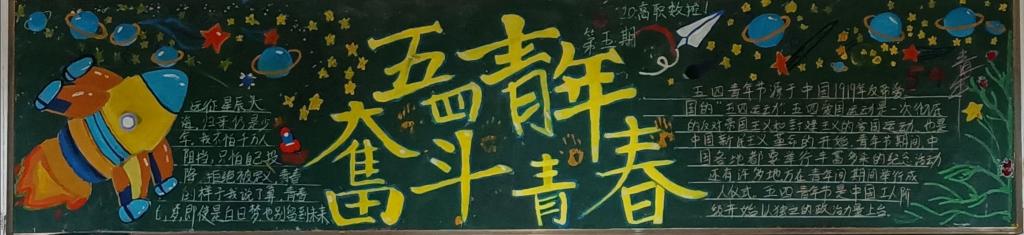 20高职数控1
第五期
五四青年
奋斗青春
远征星辰大
海,归来仍是少
年,我不怕千万人
阻挡,只怕自己投
降 拒绝被定义 青春
的样子我说了算,青春
即使是白日梦也到未来
五四青年节源于中国1919年反帝爱
国的"五四运动",五四爱国运动是一次彻底
的反对帝国主义和封建主义的爱国运动,也是
中国新民主主义革命的开始,青年节期间中
国各地都要举行丰富多采的纪念活动
还有许多地方在青年间期间举行成
人仪式,五四青年节是中国工人阶
级开始以独立的政治力量上台